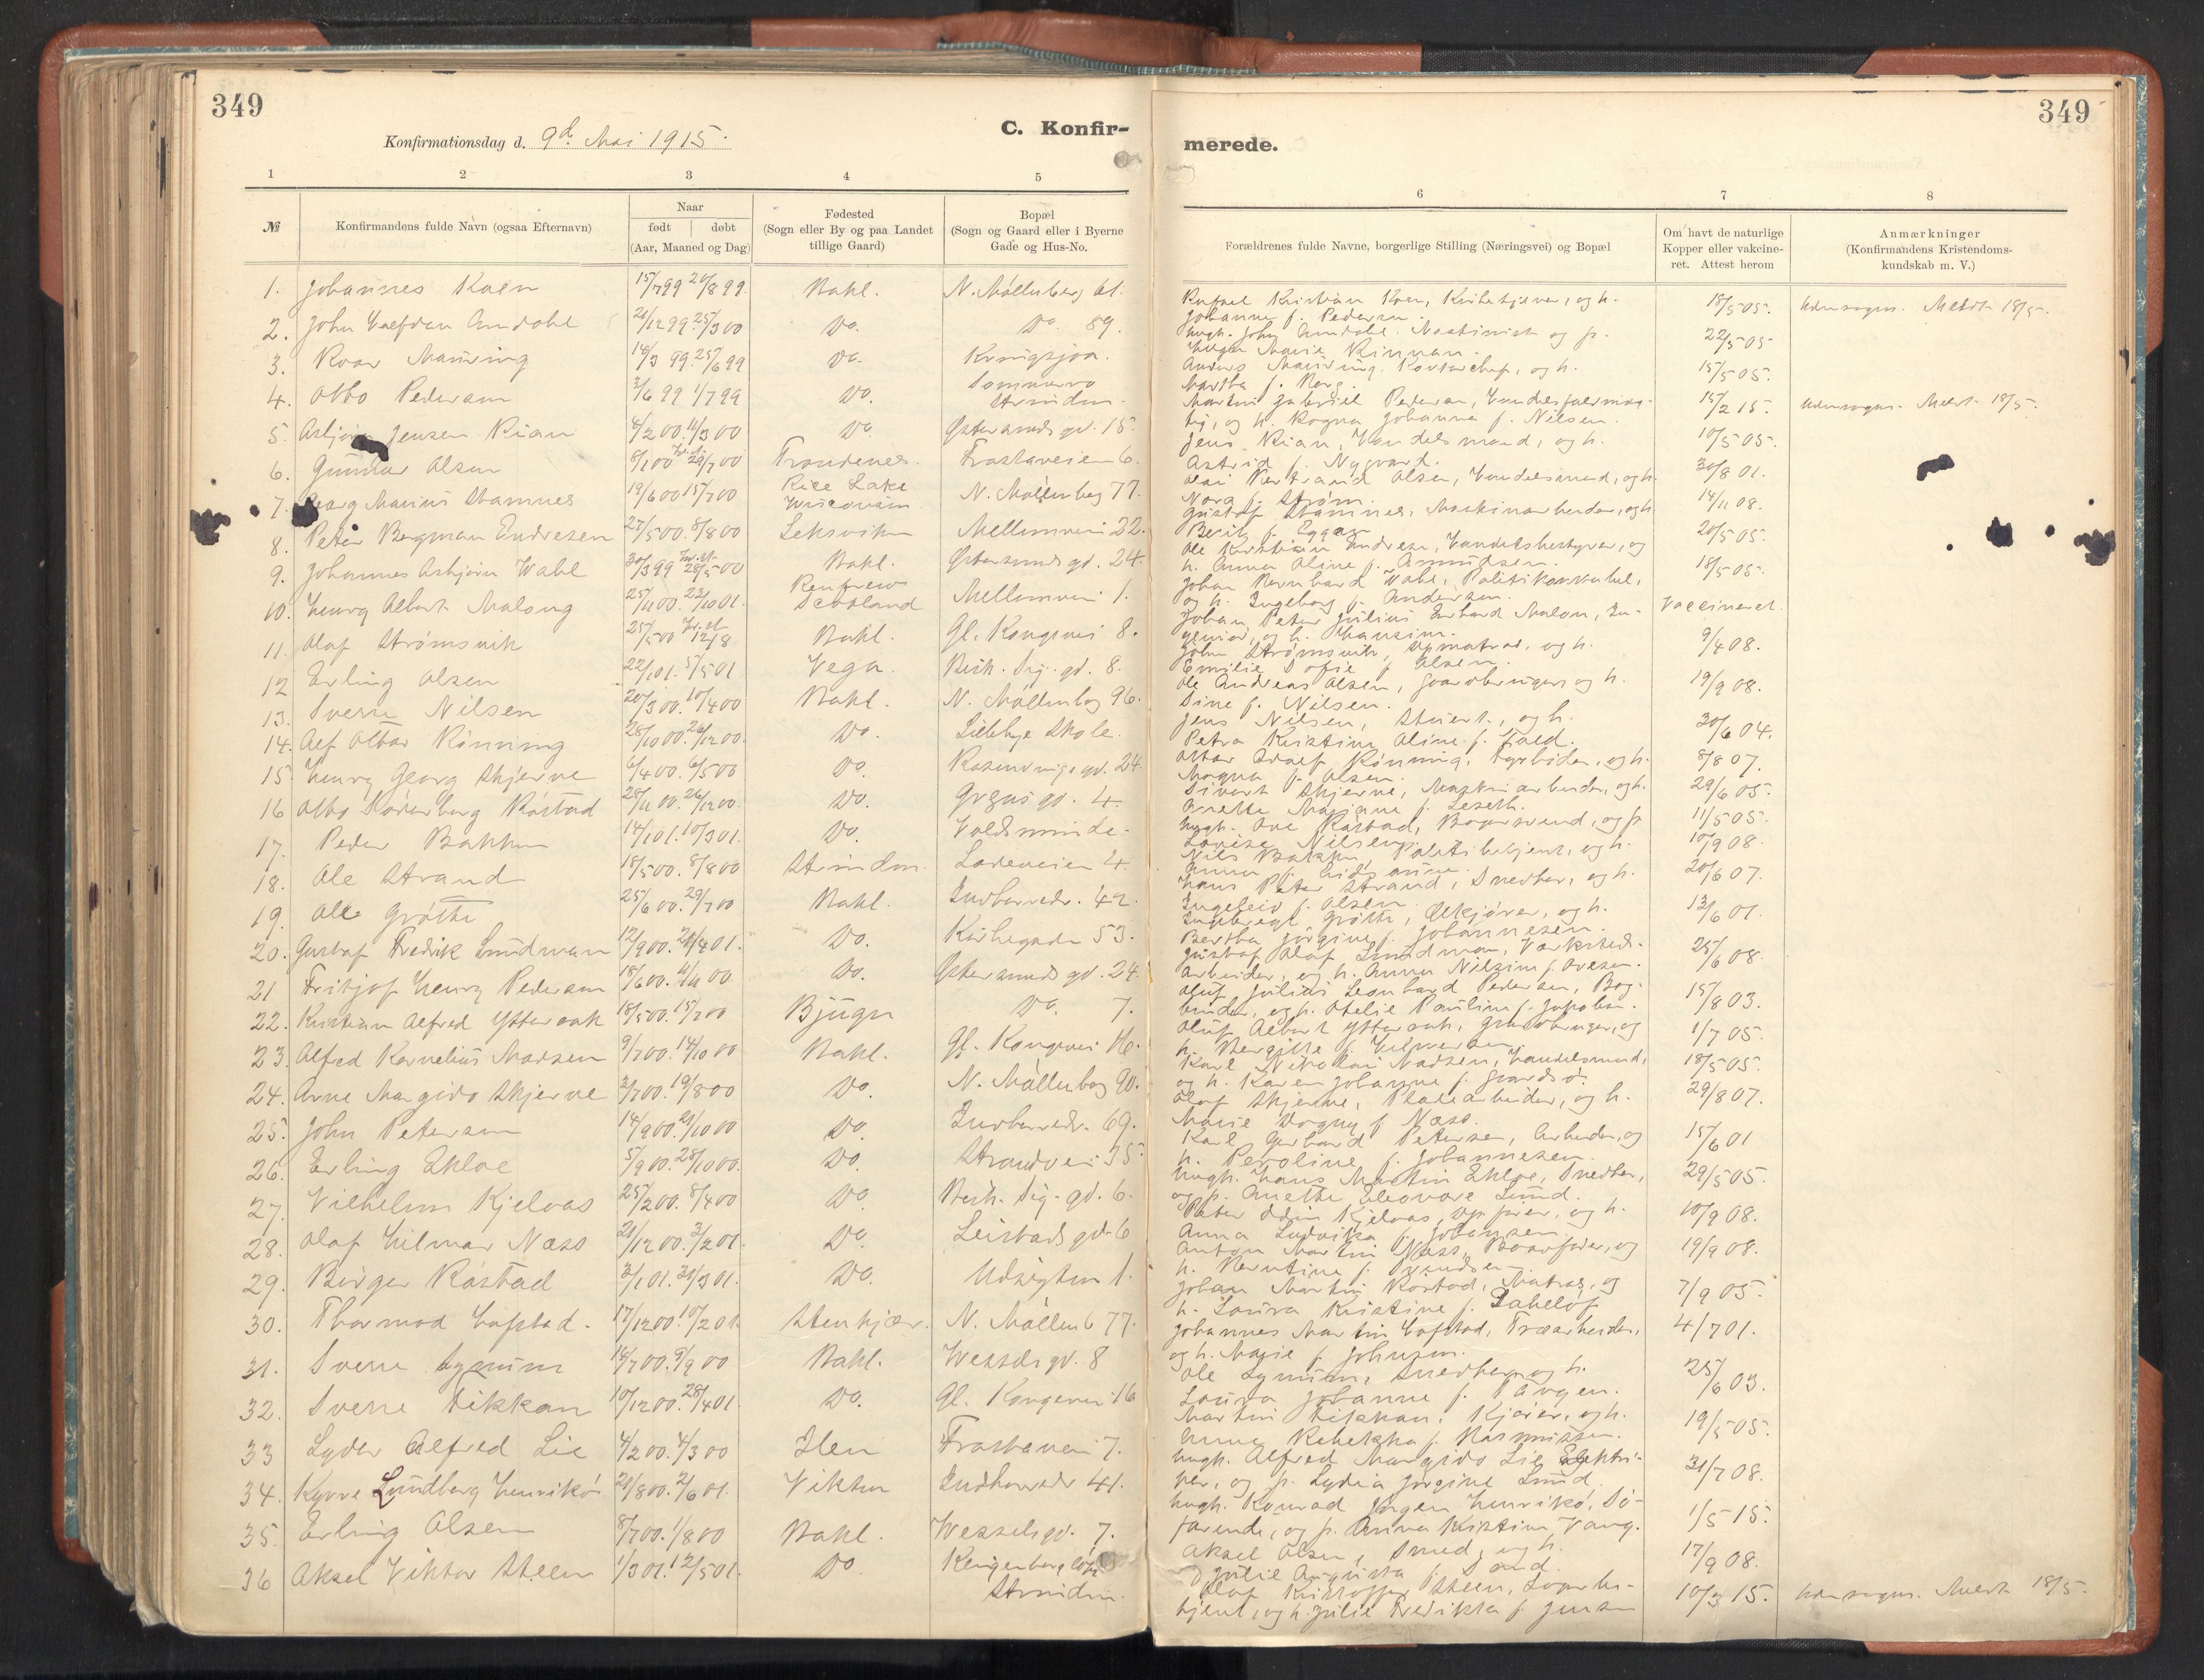 349
Konfirmationsdag d. 9d. Mai 1915.
C. Konfir-
1 2 3 4 5
№
Konfirmandens fulde Navn (ogsaa Efternavn)
Naar
født døbt
(Aar, Maaned og Dag)
Fødested
(Sogn eller By og paa Landet
tillige Gaard)
Bopæl
(Sogn og Gaard eller i Byerne
Gade og Hus-No.
1. Johannes Koen 15/7 99 20/8 99. Bakl. N. Møllenberg 61.
2. John Amdahl 99. 25/3 00 Do. Do. 89.
3. Roar Mauring 14/3 99. 25/6 99 Do. Kvingsjøa.
4. Otto Pedersen 3/6 99 1/7 99 Do. Strinden.
5. Jensen Rian 4/2 00. 11/3 00 Do. Østersunds gd. 15.
6. Gunnar Olsen 8/1 00 29/7 00 Trondenes. Frostaveien 6.
7. Georg Marius Stamnes 19/6 00 15/7 00 Rice Lake N. Møllenbg 77.
8. Peter Bergman Endresen 27/5 00. 8/8 00 Leksviken Mellemveien 22.
9. Johannes Asbjørn Wahl 30/3 99 28/5 00 Bakl. Østersunds gd. 24.
10. Henry Albert Malong 25/11 00. 22/10 01. Renfrew Scotland Mellemveien 1.
11. Olaf Strømsvik 25/5 00 12/8 Bakl. Gl. Kongevei 8.
12 Erling Olsen 22/1 01. 5/5 01 Vega. Bisk. Sig. gd. 8.
13. Sverre Nilsen 20/3 00. 10/4 00 Bakl. N. Møllenbg 96.
14. Alf Ottar Rønning 28/10 00. 26/12 00. Do. Lilleby Skole.
15. Henry Georg Skjerve 6/4 00. 6/5 00 Do. Rosenborgs gd. 24
16 Otto Søderberg Røstad 28/11 00. 26/12 00. Do. Gyges gd. 4.
17. Peder Bakken 14/1 01. 10/3 01. Do. Voldsminde.
18. Ole Strand 18/5 00. 8/8 00 Strinden. Ladeveien 4.
19. Ole Grøtte 25/6 00. 29/7 00 Bakl. Indherredv. 42.
20. Gustaf Fredrik Lundman 12/9 00. 28/4 01. Do. Kirkegaden 53.
21 Fritjof Henry Pedersen 18/6 00. 11/11 00 Do. Østersunds gd. 24.
22. Kristian Alfred Ytterøak 18/5 00. 15/7 00 Bjugn Do. 7.
23. Alfred Kornelius Madsen 9/7 00. 14/10 00 Bakl. Gl. Kongevei 16.
24. Arne Margido Skjerve 2/7 00. 19/8 00 Do. N. Møllenbg 90.
25. John Petersen 14/9 00. 21/10 00 Do. Indherredv. 69.
26. Erling Ekloe 5/9 00. 28/10 00. Do. Strandvei 35.
27. Vilhelm Kjelaas 25/2 00. 8/4 00 Do. Bisk. Sig. gd. 6.
28. Olaf Hilmar Næss 20/12 00. 3/2 01. Do. Leistads gd. 6
29. Birger Røstad 2/1 01. 31/3 01. Do. Udsigten 1.
30. Thormod Hofstad. 17/12 00. 10/2 01 Stenkjær. N. Møllenb 77.
31. Sverre Lynum 14/7 00. 9/9 00 Bakl. Wessels gd. 8
32. Sverre Tikkan 10/12 00. 28/4 01. Do. Gl. Kongevei 16
33 Lyder Alfred Lie 4/2 00. 4/3 00 Ilen Frostavei 7.
34. Kyrre Lundberg Henriksø 20/8 00. 2/6 01. Vikten Indherredv 41.
35. Erling Olsen 8/7 00. 1/8 00 Bakl. Wessels gd. 7.
36 Aksel Viktor Steen 1/3 01. 12/5 01. Do.
Strinden.
349
merede.
6 7 8
Forældrenes fulde Navne, borgerlige Stilling (Næringsvei) og Bopæl
Om havt de naturlige
Kopper eller vakcine-
ret. Attest herom
Anmærkninger
(Konfirmandens Kristendoms-
kundskab m. V.)
Rafael Kristian Koen, og h. 18/5 05. Udensogns. Meldt 18/5.
Johanne f. Pedersen.
ungk. John Amdahl. Maskinist og p. 22/5 05
Marie Kinnan.
Anders Mauring. Kontorchef, og h. 15/5 05.
Martha f. Berg.
Martin Gabriel Pedersen, 15/2 15. Udensogns. Meldt 18/5.
og h. Ragna Johanna f. Nilsen.
Jens Rian, Handelsmand, og h. 10/5 05.
Astrid f. Nygaard.
Olsen, Handelsmand, og h. 30/8 01.
Nora f. Strøm.
Gustaf Stamnes, Maskinarbeider, og h. 14/11 08.
Berit f. Eggan
Ole Kristian Endresen, Handelsbestyrer, og 20/5 05.
h. Anna Oline f. Amundsen.
Johan Bernhard Wahl, Politikonstabel, 18/5 05.
og h. Ingeborg f. Andersen.
Johan Peter Julius Erhard Malon, In- Vaccineret.
geniør, og h.
John Strømsvik, og h. 9/4 08.
Emilie Sofie f. Olsen.
Ole Andreas Olsen, og h. 19/9 08.
Sine f. Nilsen.
Jens Nilsen, Stuert., og h. 30/6 04.
Petra Kristine Oline f. Fald.
Ottar Adolf Rønning, Fyrbøder, og h. 8/8 07.
Magna f. Olsen.
Sivert Skjerve, Maskinarbeider, og h. 29/6 05.
Anette Marjane f. Leseth.
ungk. Ove Røstad, Bagersvend, og p 11/5 05.
Lovise Nilsen.
Nils Bakken, Politibetjent, og h. 10/9 08.
Anna f.
Hans Peter Strand, Snedker, og h. 20/6 07.
Ingeleiv f. Olsen.
Ingebregt Grøtte, Ølkjører, og h. 13/6 01.
Bertha Jørgine f. Johannesen.
Gustaf Olof Lundman, Værksteds- 25/6 08.
arbeider, og h. Anna Nilsine f. Ovesen.
Oluf Julius Leonhard Pedersen, Bog- 15/8 03.
binder, og h. Otelie Pauline f. Jakobsen.
Oluf Albert Ytterøak, og 1/7 05.
h. Bergitte f.
Karl Nikolai Madsen, Handelsmand, 18/5 05.
og h. Karen Johanne f.
Olaf Skjerve, Pladearbeider, og h. 29/8 07.
Marie Dagny f. Næss.
Karl Gerhard Petersen, Arbeider, og 15/6 01
h. Peroline f. Johannesen.
ungk. Hans Martin Ekloe, Snedker, 29/5 05.
og p. Anette Eleonore Lund.
Peter Odin Kjelaas, og h. 10/9 08.
Anna Ludvikka f. Johansen.
Anton Martin Næss, og 19/9 08.
h. Berntine f. Svendsen
Johan Martin Røstad, Matros, og 7/9 05.
h. Laura Kristine f.
Johannes Martin Hofstad, Træarbeider, 4/7 01.
og h. Marie f. Johnsen.
Ole Lynum, Snedker, og h. 25/6 03.
Laura Johanne f.
Martin Tikkan, og h. 19/5 05.
Anna Rebekka f. Rasmussen.
ungk. Alfred Margido Lie Elektri- 31/7 08.
ker, og p. Lydia Jørgine Lund.
ungk. Konrad Jørgen Henriksø, Sø- 1/5 15.
farende, og p. Anna Kristine Vang.
Aksel Olsen, Smed, og h. 17/9 08.
Julie Augusta f. Sand.
Olaf Kristoffer Steen, Lagerbe- 10/3 15. Udensogns. Meldt 18/5.
tjent, og h. Julie Fredikka f. Jensen